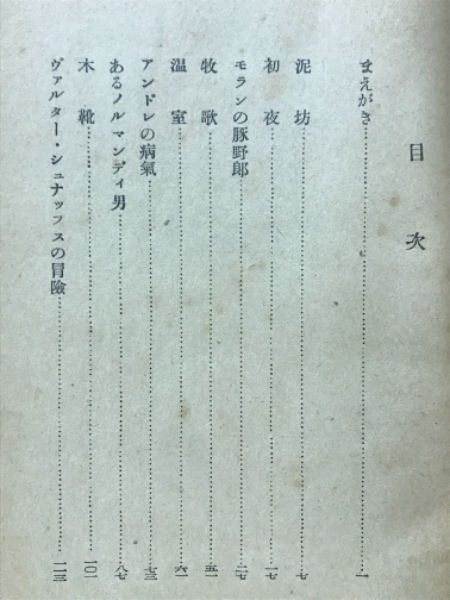 目次
まえがき……一
泥坊……七
初夜……一七
モランの豚野郎……二七
牧歌……五一
温室……六一
アンドレの病氣……七三
あるノルマンディ男……八七
木靴……一〇一
ヴァルター・シュナッフスの冒險……一一三